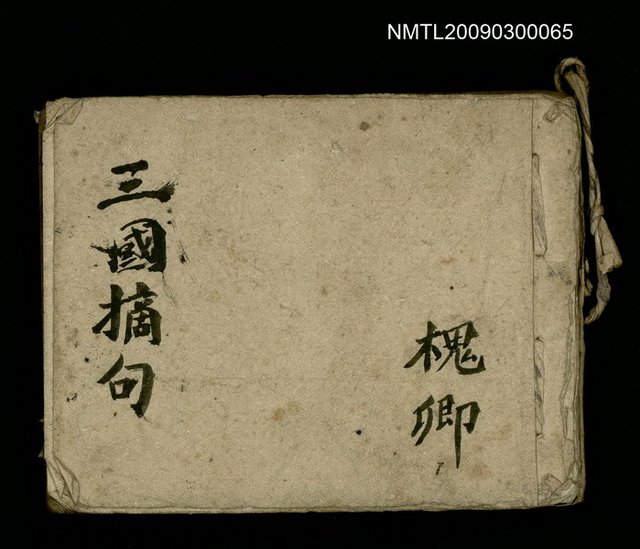 NMTL20090300065
三國摘句
槐卿